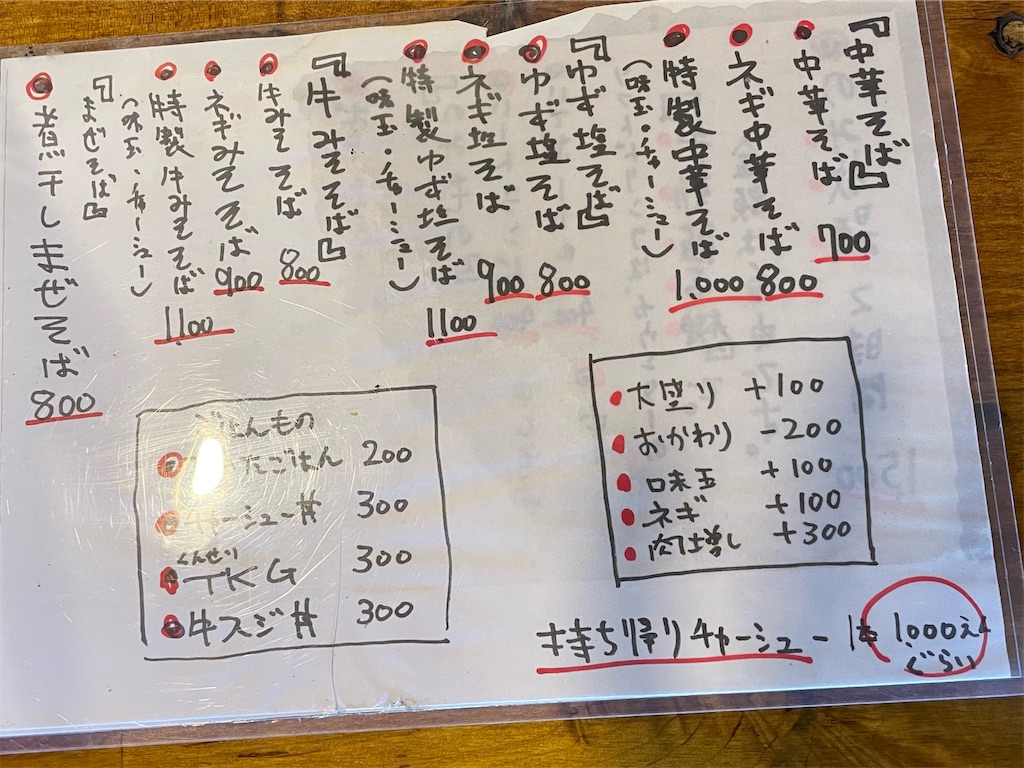 『中華そば』
中華そば 700
ネギ中華そば 800
特製中華そば 1,000
(味玉・チャーシュー)
『ゆず塩そば』
ゆず塩そば 800
ネギ塩そば 900
特製ゆず塩そば 1100
(味玉・チャーシュー)
『牛みそそば』
牛みそそば 800
ネギみそそば 900
特製牛みそそば 1100
(味玉・チャーシュー)
『まぜそば』
煮干しまぜそば 800
大盛り +100
おかわり -200
味玉 +100
ネギ +100
肉増し +300
ごはんもの
ごはん 200
チャーシュー丼 300
くんせい
TKG 300
牛スジ丼 300
持ち帰りチャーシュー 1本 1,000えん
ぐらい